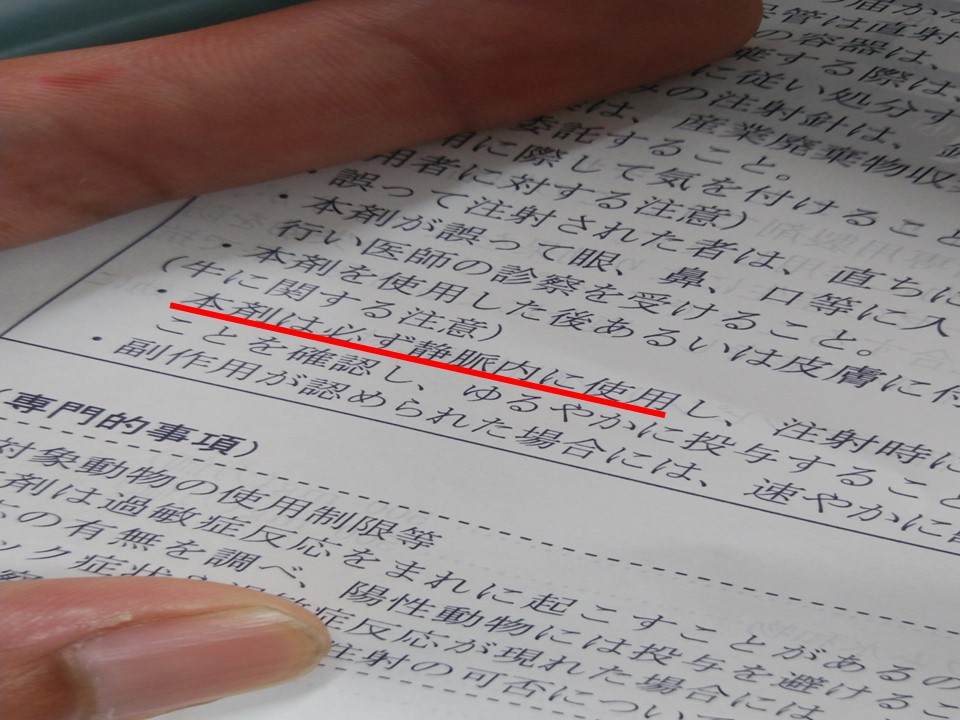 管は直射
の容器は、
棄する際は、
に従い処分す
の注射針は、
は、産業廃棄物収
委託すること。
に際して気を付けること
用者に対する注意）
誤って注射された者は、直ちに
・本剤が誤って眼、鼻、口等に入
行い医師の診察を受けること。
・本剤を使用した後あるいは皮膚に付
（牛に関する注意）
・本剤は必ず静脈内に使用し、注射時に
ことを確認し、ゆるやかに投与すること
・副作用が認められた場合には、速やかに
（専門的事項）
対象動物の使用制限等
剤は過敏症反応をまれに起こすことがあるの
の有無を調べ、陽性動物には投与を避けるこ
ック症状
症反応が現れた場合には
注射の可否につい